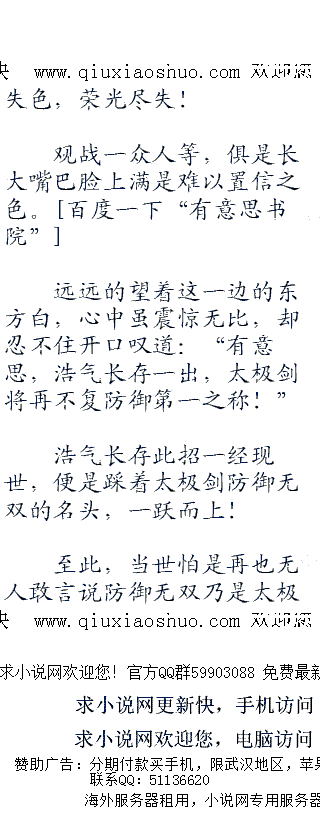 快 www.qiuxiaoshuo.com 欢迎您
失色，荣光尽失！
观战一众人等，俱是长
大嘴巴脸上满是难以置信之
色。[百度一下“有意思书
院”]
远远的望着这一边的东
方白，心中虽震惊无比，却
忍不住开口叹道：“有意
思，浩气长存一出，太极剑
将再不复防御第一之称！”
浩气长存此招一经现
世，便是踩着太极剑防御无
双的名头，一跃而上！
至此，当世怕是再也无
人敢言说防御无双乃是太极
快 www.qiuxiaoshuo.com 欢迎您
求小说网欢迎您！官方QQ群59903088 免费最新
求小说网更新快，手机访问
求小说网欢迎您，电脑访问
赞助广告：分期付款买手机，限武汉地区，苹果
联系QQ：51136620
海外服务器租用，小说网专用服务器